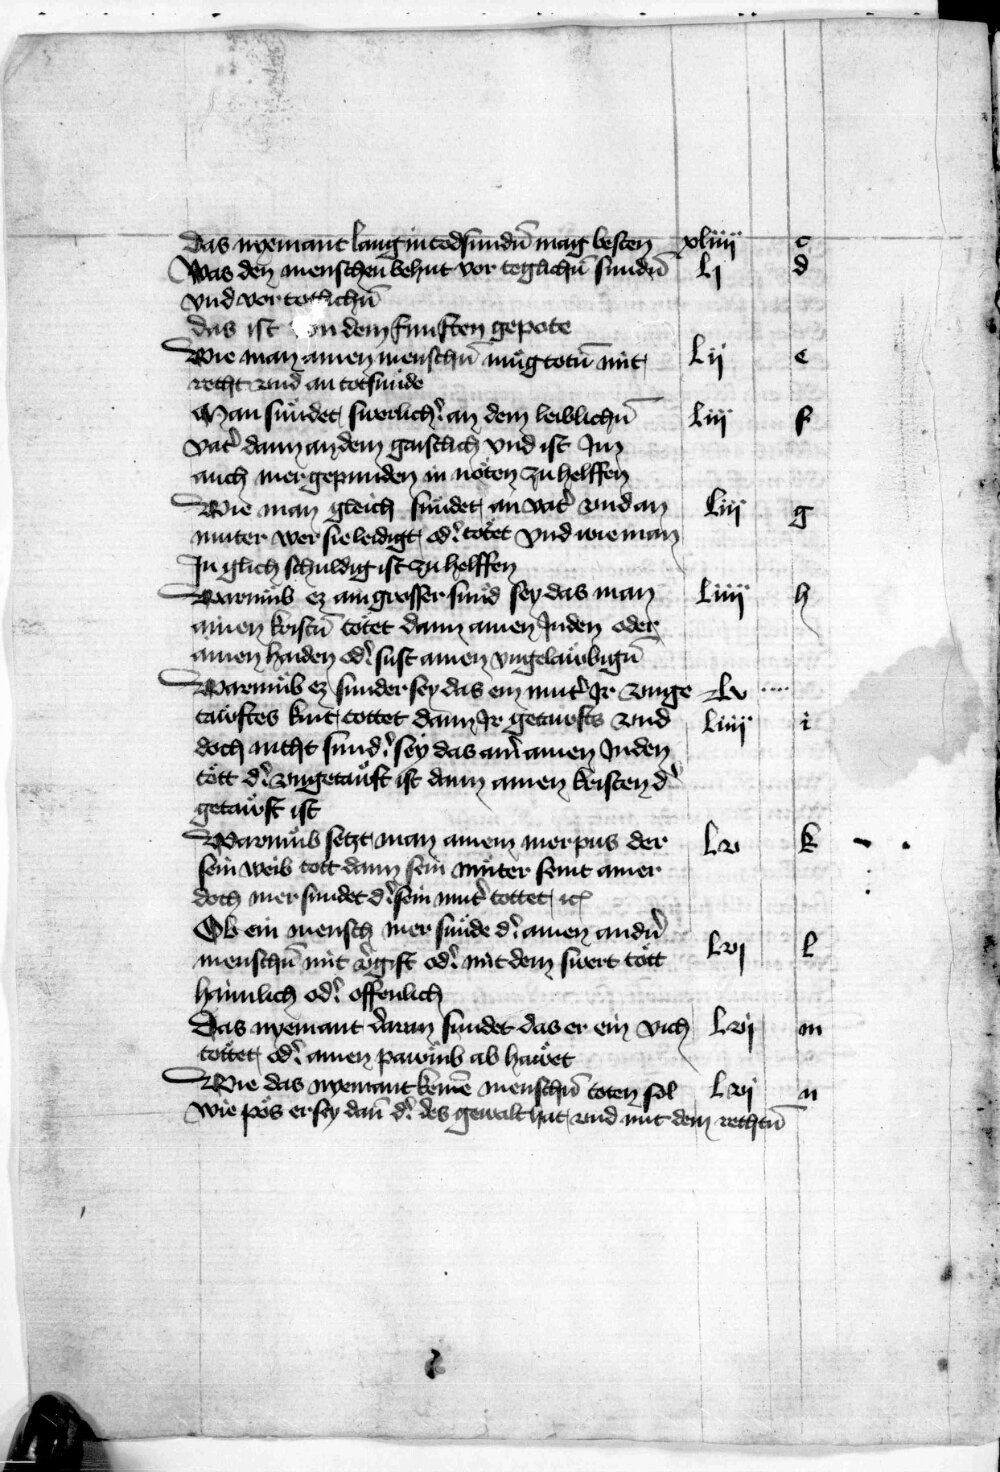 Das nyemant lang in todsundñ mag besten xlviiij c
Was den menschen behut vor teglichñ sundñ Lj d
vnd vor totlichñ
das ist von dem funften gepote
Wie man ainen menschñ mug totñ mit Lij e
recht vnd an totsunde
Man sündet swerlich' an dem leiblichñ Liij f
vat' dann an dem gaistlich vnd ist Im
auch mer gepunden in nöten zu helffen
Wie man gleich sündet an vat' vnd an Liij g
muter wer sie leidigt od' tötet vnd wie man
In glich schuldig ist zu helffen
Warumb ez ain grosser sund sey das man Liiij h
ainen kristñ tötet dann ainen Juden oder
ainen haiden od' sust ainen vngelaubigñ
Warumb ez sunder sey das ein mut' Ir vnge Lv
tauftes kint tottet dann Ir getaufts vnd Liiij i
doch nicht sund' sey das ainer ainen Juden
tött d' vngetauft ist dann ainen kristen d'
getauft ist
Warumb setzt man ainem mer pus der Lv k
sein weib tott dann sein müter seint ainer
doch mer sundet d' sein mut' tottet etc
Ob ein mensch mer sünde d' ainen andñ
menschñ mit v'gift od' mit dem swert tött Lvj l
haimlich od' offenlich
Das nyemant daran sundet das er ein vich Lvij m
tottet od' ainen pawmb ab hawet
Wie das nyemant keinē menschñ toten sol Lvij n
wie pös er sey dañ d' des gewalt hat vnd mit dem rechtñ